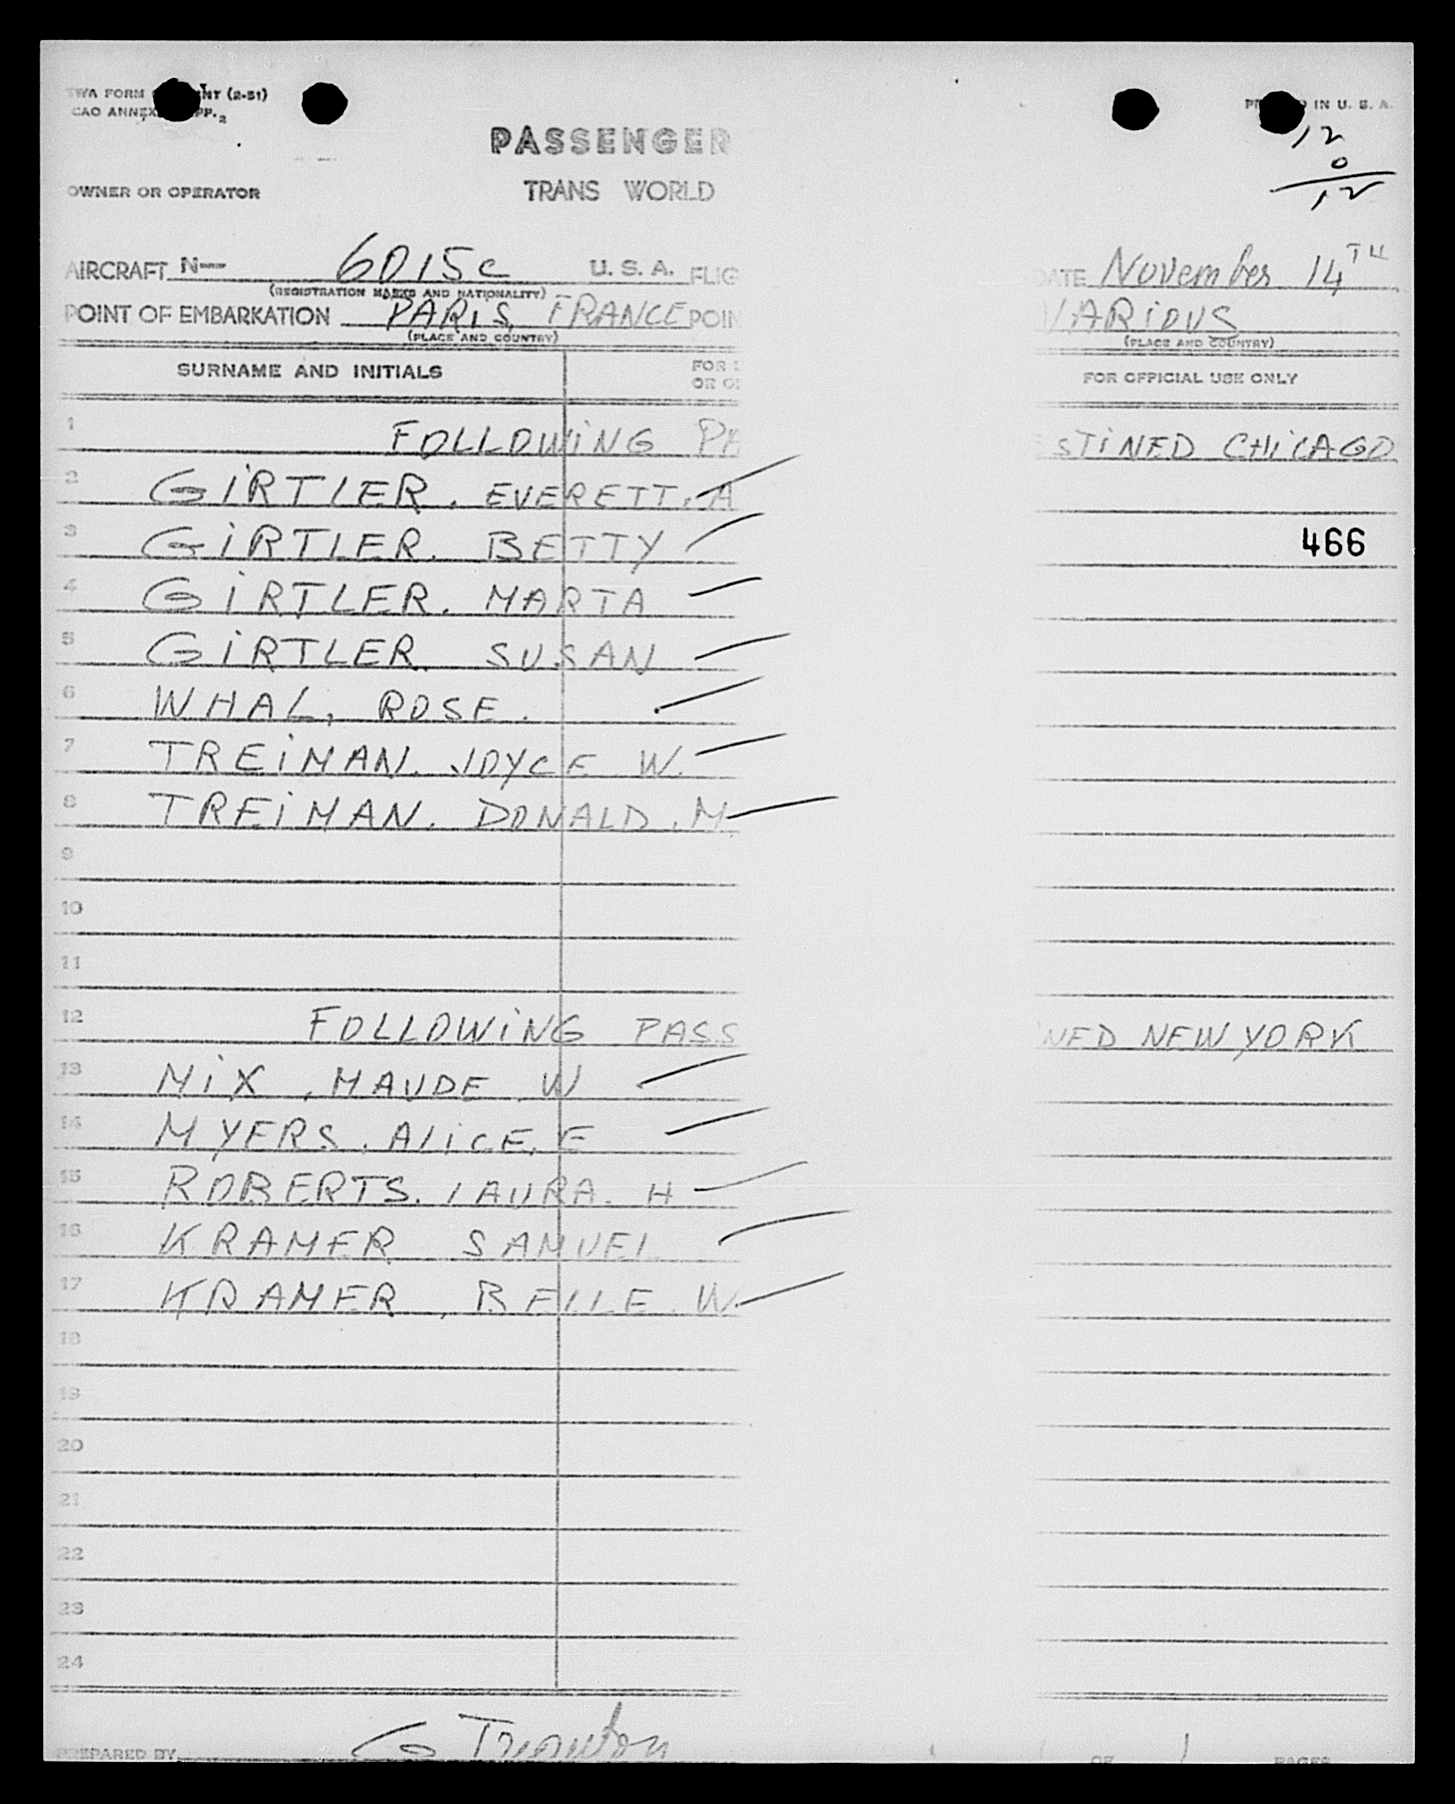 TWA FORM NT (2-51)
CAO ANNEX PP. 2
PR D IN U. S. A.
12
0
12
PASSENGER
OWNER OR OPERATOR TRANS WORLD
AIRCRAFT N— 6015c U. S. A. FLIG DATE November 14TH
(REGISTRATION MARKS AND NATIONALITY)
POINT OF EMBARKATION PARIS, FRANCE POIN VARIOUS
(PLACE AND COUNTRY) (PLACE AND COUNTRY)
SURNAME AND INITIALS FOR OR FOR OFFICIAL USE ONLY
1 FOLLOWING PA ESTINED CHICAGO
2 GIRTLER. EVERETT. A
3 GIRTLER. BETTY 466
4 GIRTLER. MARTA
5 GIRTLER. SUSAN
6 WHAL, ROSE.
7 TREIMAN. JOYCE W.
8 TREIMAN. DONALD. M.
9
10
11
12 FOLLOWING PASS NED NEW YORK
13 NIX, MAUDE. W
14 MYERS. ALICE. E
15 ROBERTS. LAURA. H
16 KRAMER SAMUEL
17 KRAMER, BELLE. W.
18
19
20
21
22
23
24
PREPARED BY G OF 1 PAGES